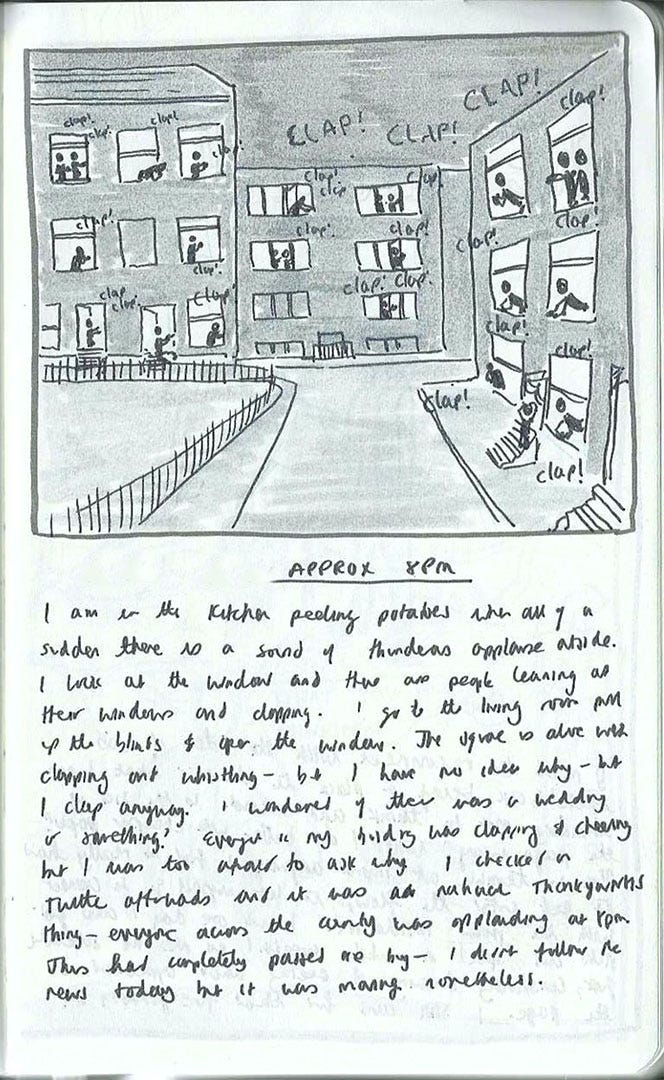 CLAP!
CLAP!
CLAP!
clap!
clap!
clap!
clap!
clap!
clap!
clap!
clap
clap!
clap!
clap!
clap!
clap!
clap!
clap!
clap!
clap!
clap
clap!
clap!
clap! clap.
clap!
clap!
clap!
clap!
APPROX 8PM
I am in the kitchen peeling potatoes when all of a
sudden there is a sound of thunderous applause outside.
I look out the window and there are people leaning out
their windows and clapping. I go to the living room pull
up the blinds & open the windows. The square is alive with
clapping and whistling – but I have no idea why – but
I clap anyway. I wondered if there was a wedding
or something? Everyone in my building was clapping & cheering
but I was too afraid to ask why. I checked on
Twitter afterwards and it was a national Thankyou NHS
thing – everyone across the country was applauding at 8pm
This had completely passed me by – I didnt follow the
news today but it was moving nonetheless.